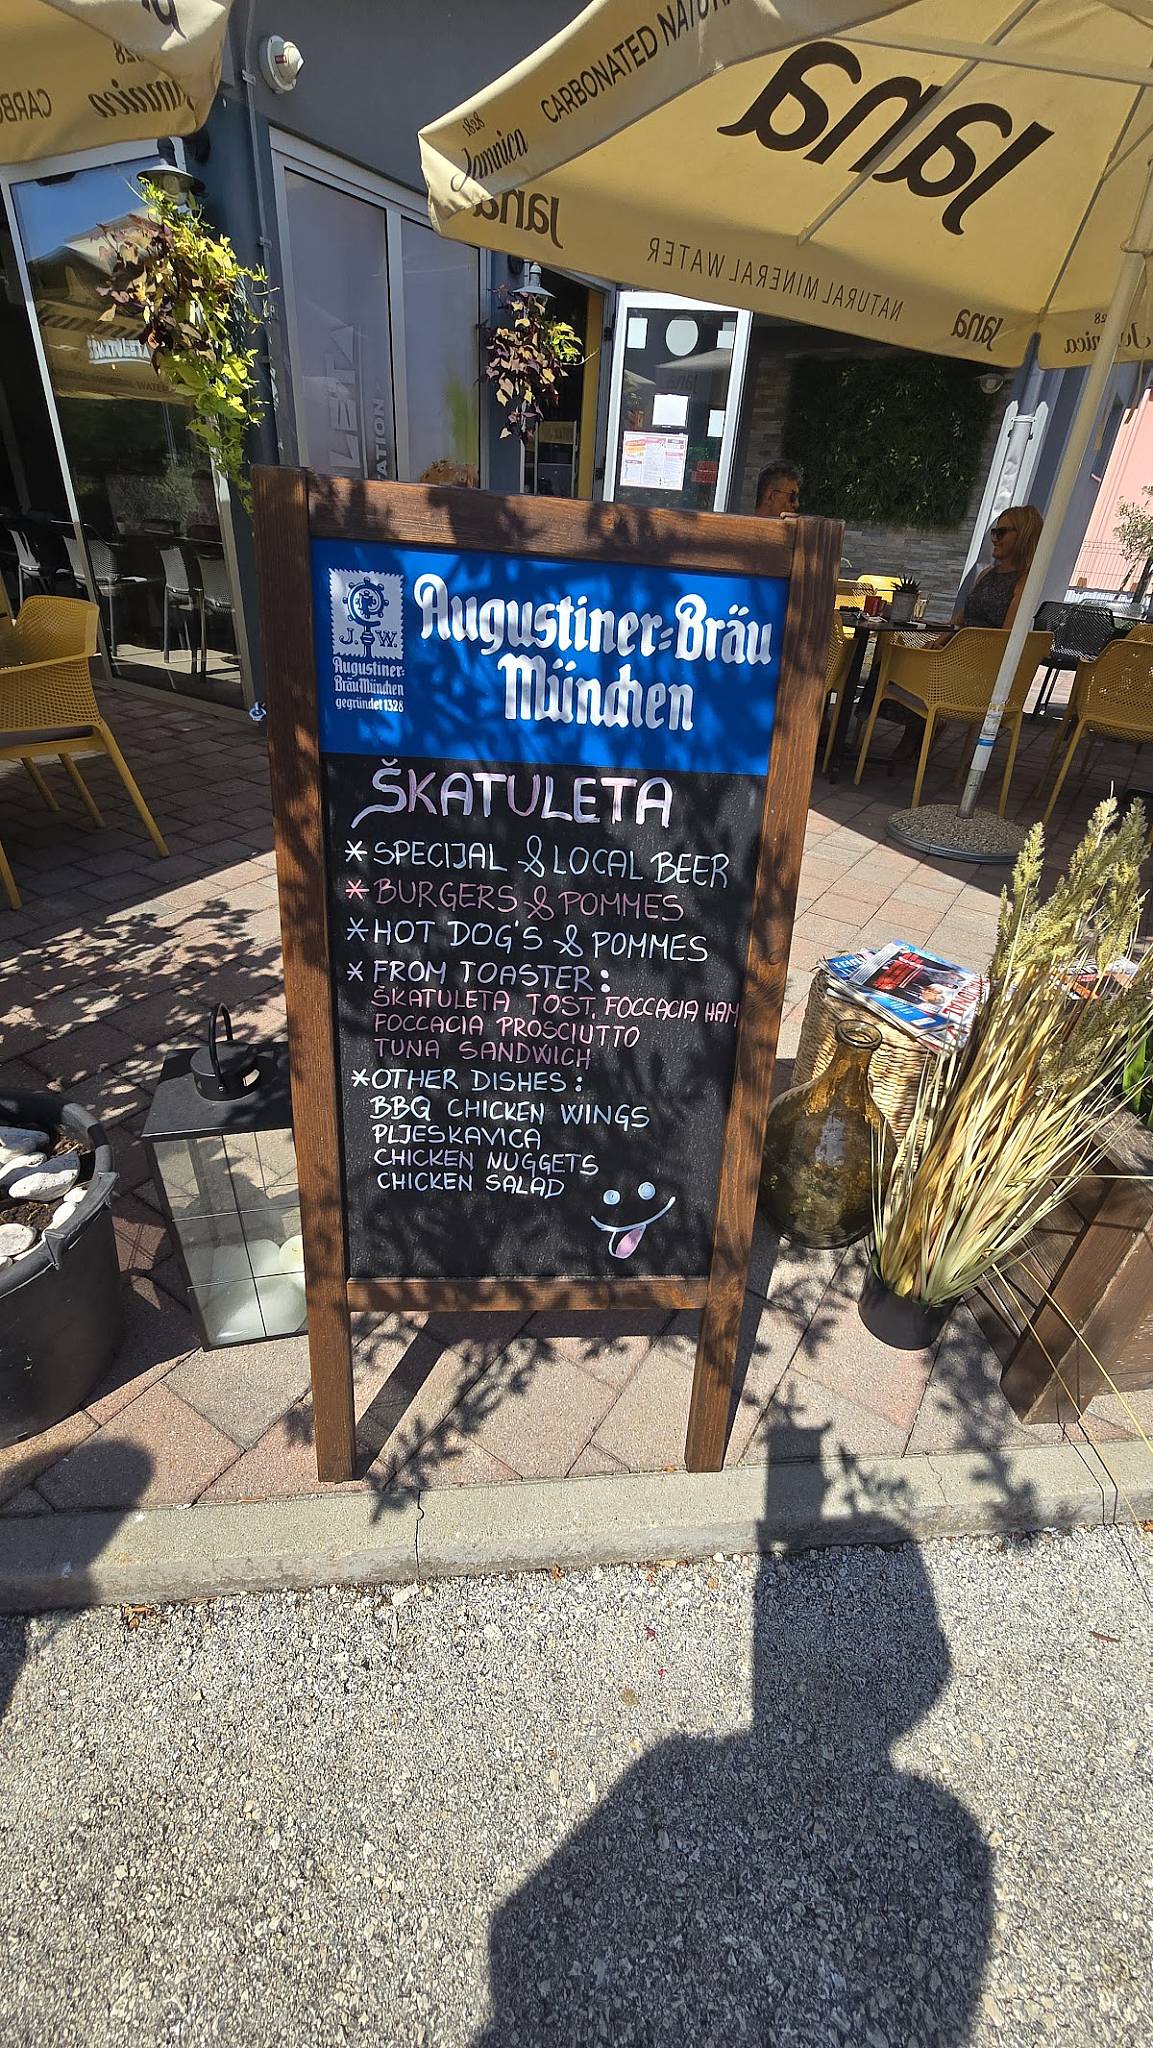 CARBONATED NATU
1828
Jamnica
Jana
Jana
NATURAL MINERAL WATER
Jana
1828
Jamnica
CARBO
J. W.
Augustiner-
Bräu München
gegründet 1328
Augustiner-Bräu
München
ŠKATULETA
* SPECIJAL & LOCAL BEER
* BURGERS & POMMES
* HOT DOG'S & POMMES
* FROM TOASTER:
ŠKATULETA TOST, FOCCACIA HAM
FOCCACIA PROSCIUTTO
TUNA SANDWICH
* OTHER DISHES:
BBQ CHICKEN WINGS
PLJESKAVICA
CHICKEN NUGGETS
CHICKEN SALAD